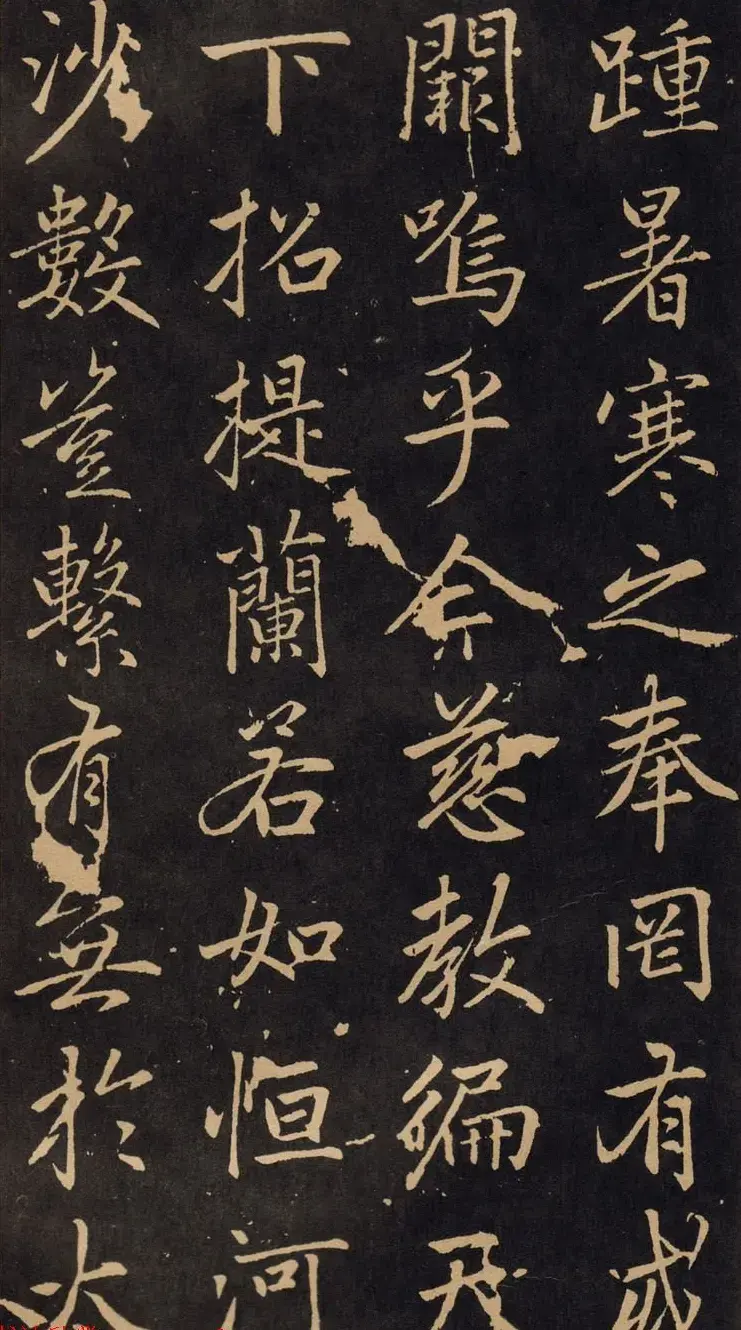 踵暑寒之奉罔有或
闕嗚乎今慈教徧天
下招提蘭若如恒河
沙數豈繫有無於大